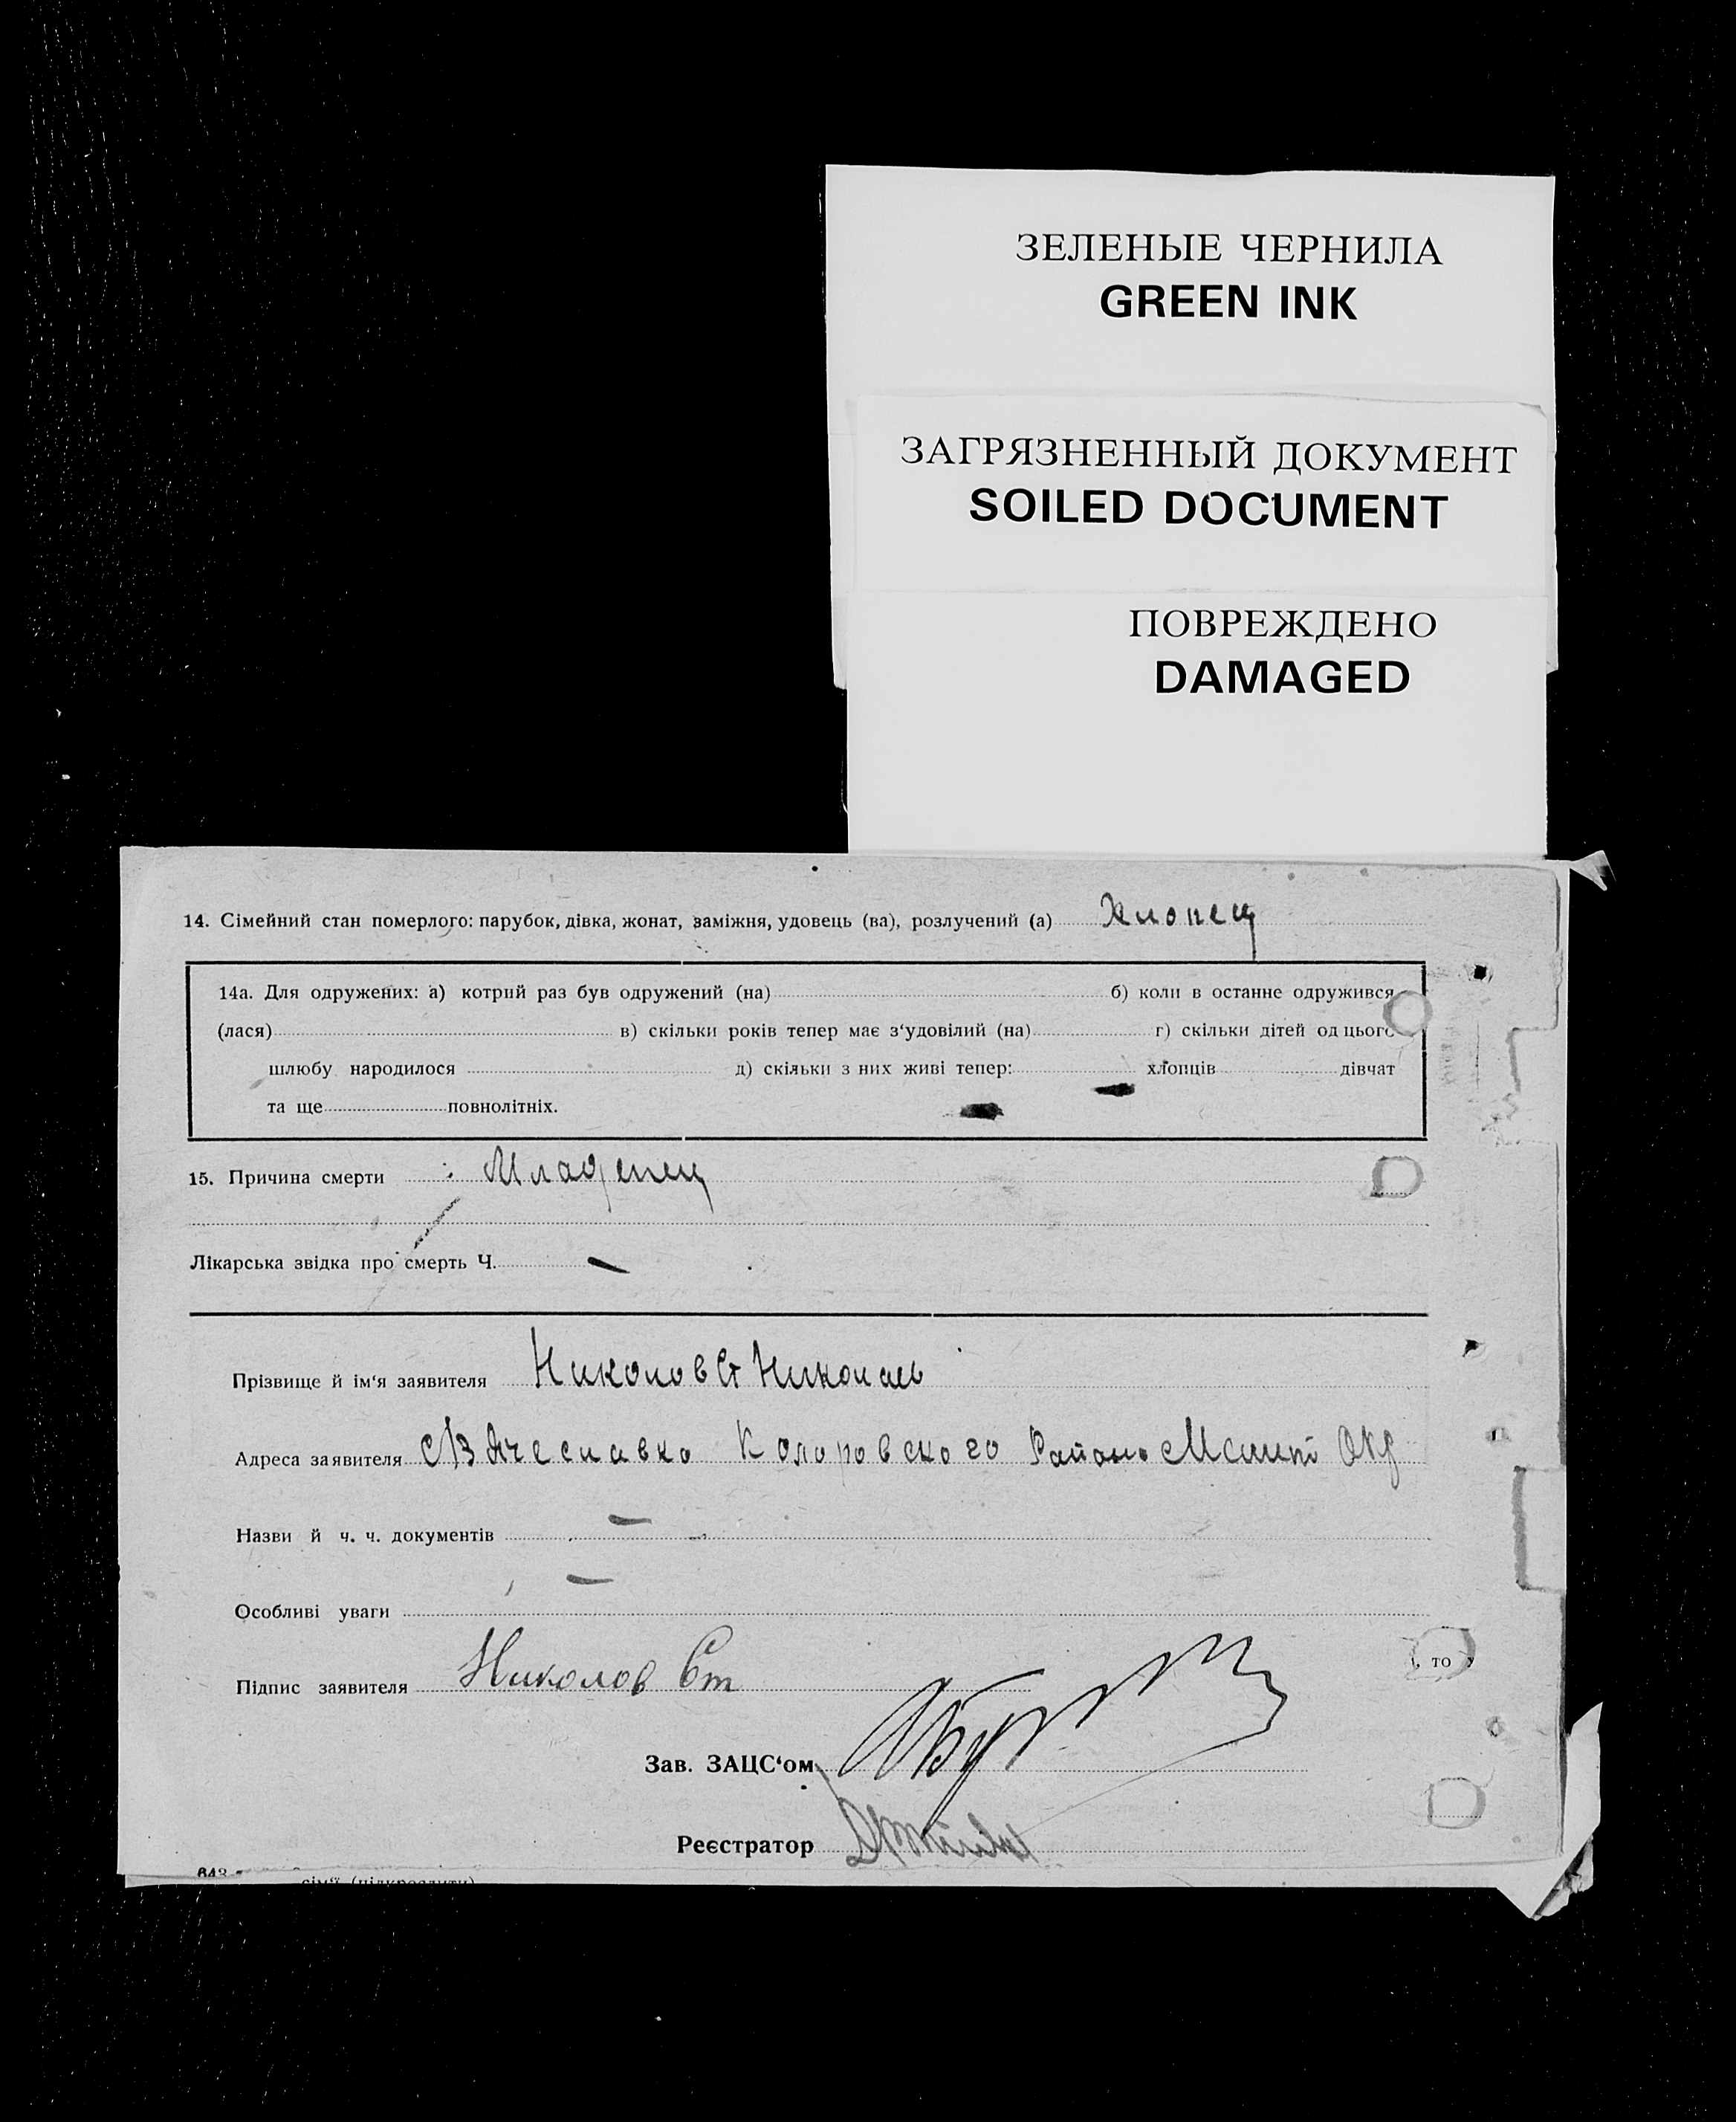 ЗЕЛЕНЫЕ ЧЕРНИЛА
GREEN INK
ЗАГРЯЗНЕННЫЙ ДОКУМЕНТ
SOILED DOCUMENT
ПОВРЕЖДЕНО
DAMAGED
14. Сімейний стан померлого: парубок, дівка, жонат, заміжня, удовець (ва), розлучений (а) Хлопец
14а. Для одружених: а) котрий раз був одружений (на) б) коли в останне одружився
(лася) в) скільки років тепер має з‘удовілий (на) г) скільки дітей од цього
шлюбу народилося д) скільки з них живі тепер: хлопців дівчат
та ще повнолітніх.
15. Причина смерти : Младенец
Лікарська звідка про смерть Ч. —
Прізвище й ім‘я заявителя Николов Ст Николаев
Адреса заявителя С Вячеславка Коларовского Район Окр
Назви й ч. ч. документів —
Особливі уваги —
Підпис заявителя Николов Ст
, то
Зав. ЗАЦС‘ом
Реєстратор
643
сім‘ї (підкреслити)